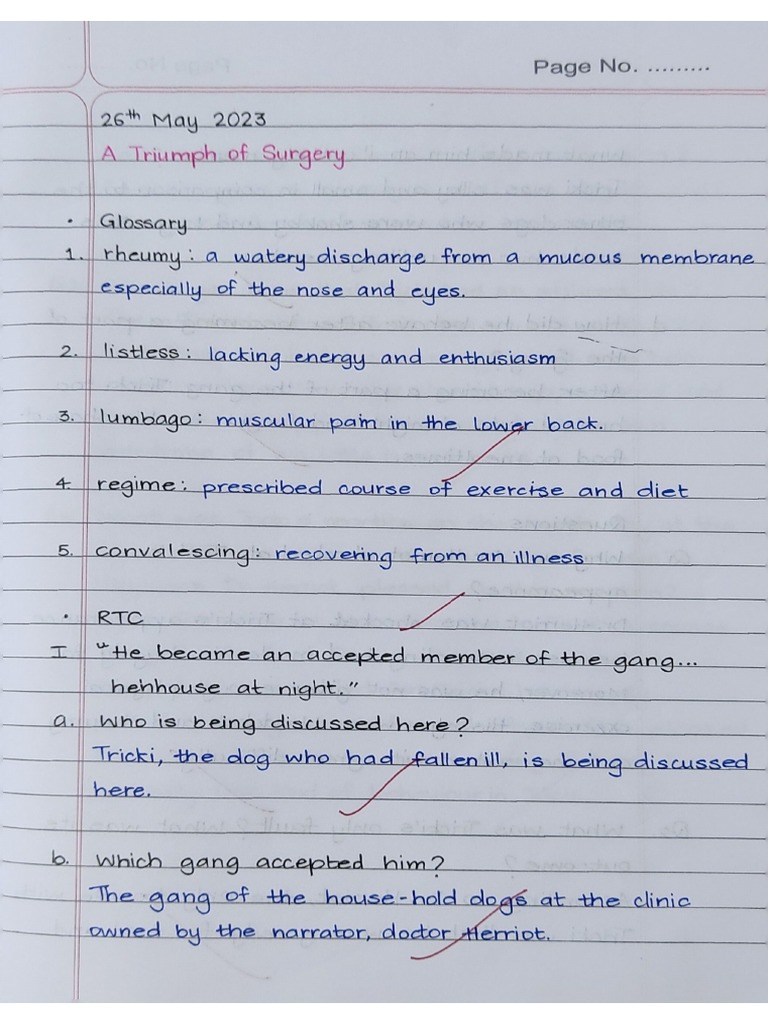 Page No. .........
26th May 2023
A Triumph of Surgery
• Glossary
1. rheumy: a watery discharge from a mucous membrane
especially of the nose and eyes.
2. listless: lacking energy and enthusiasm
3. lumbago: muscular pain in the lower back.
4. regime: prescribed course of exercise and diet
5. convalescing: recovering from an illness
• RTC
I "He became an accepted member of the gang...
henhouse at night."
a. Who is being discussed here?
Tricki, the dog who had fallen ill, is being discussed
here.
b. Which gang accepted him?
The gang of the house-hold dogs at the clinic
owned by the narrator, doctor Herriot.